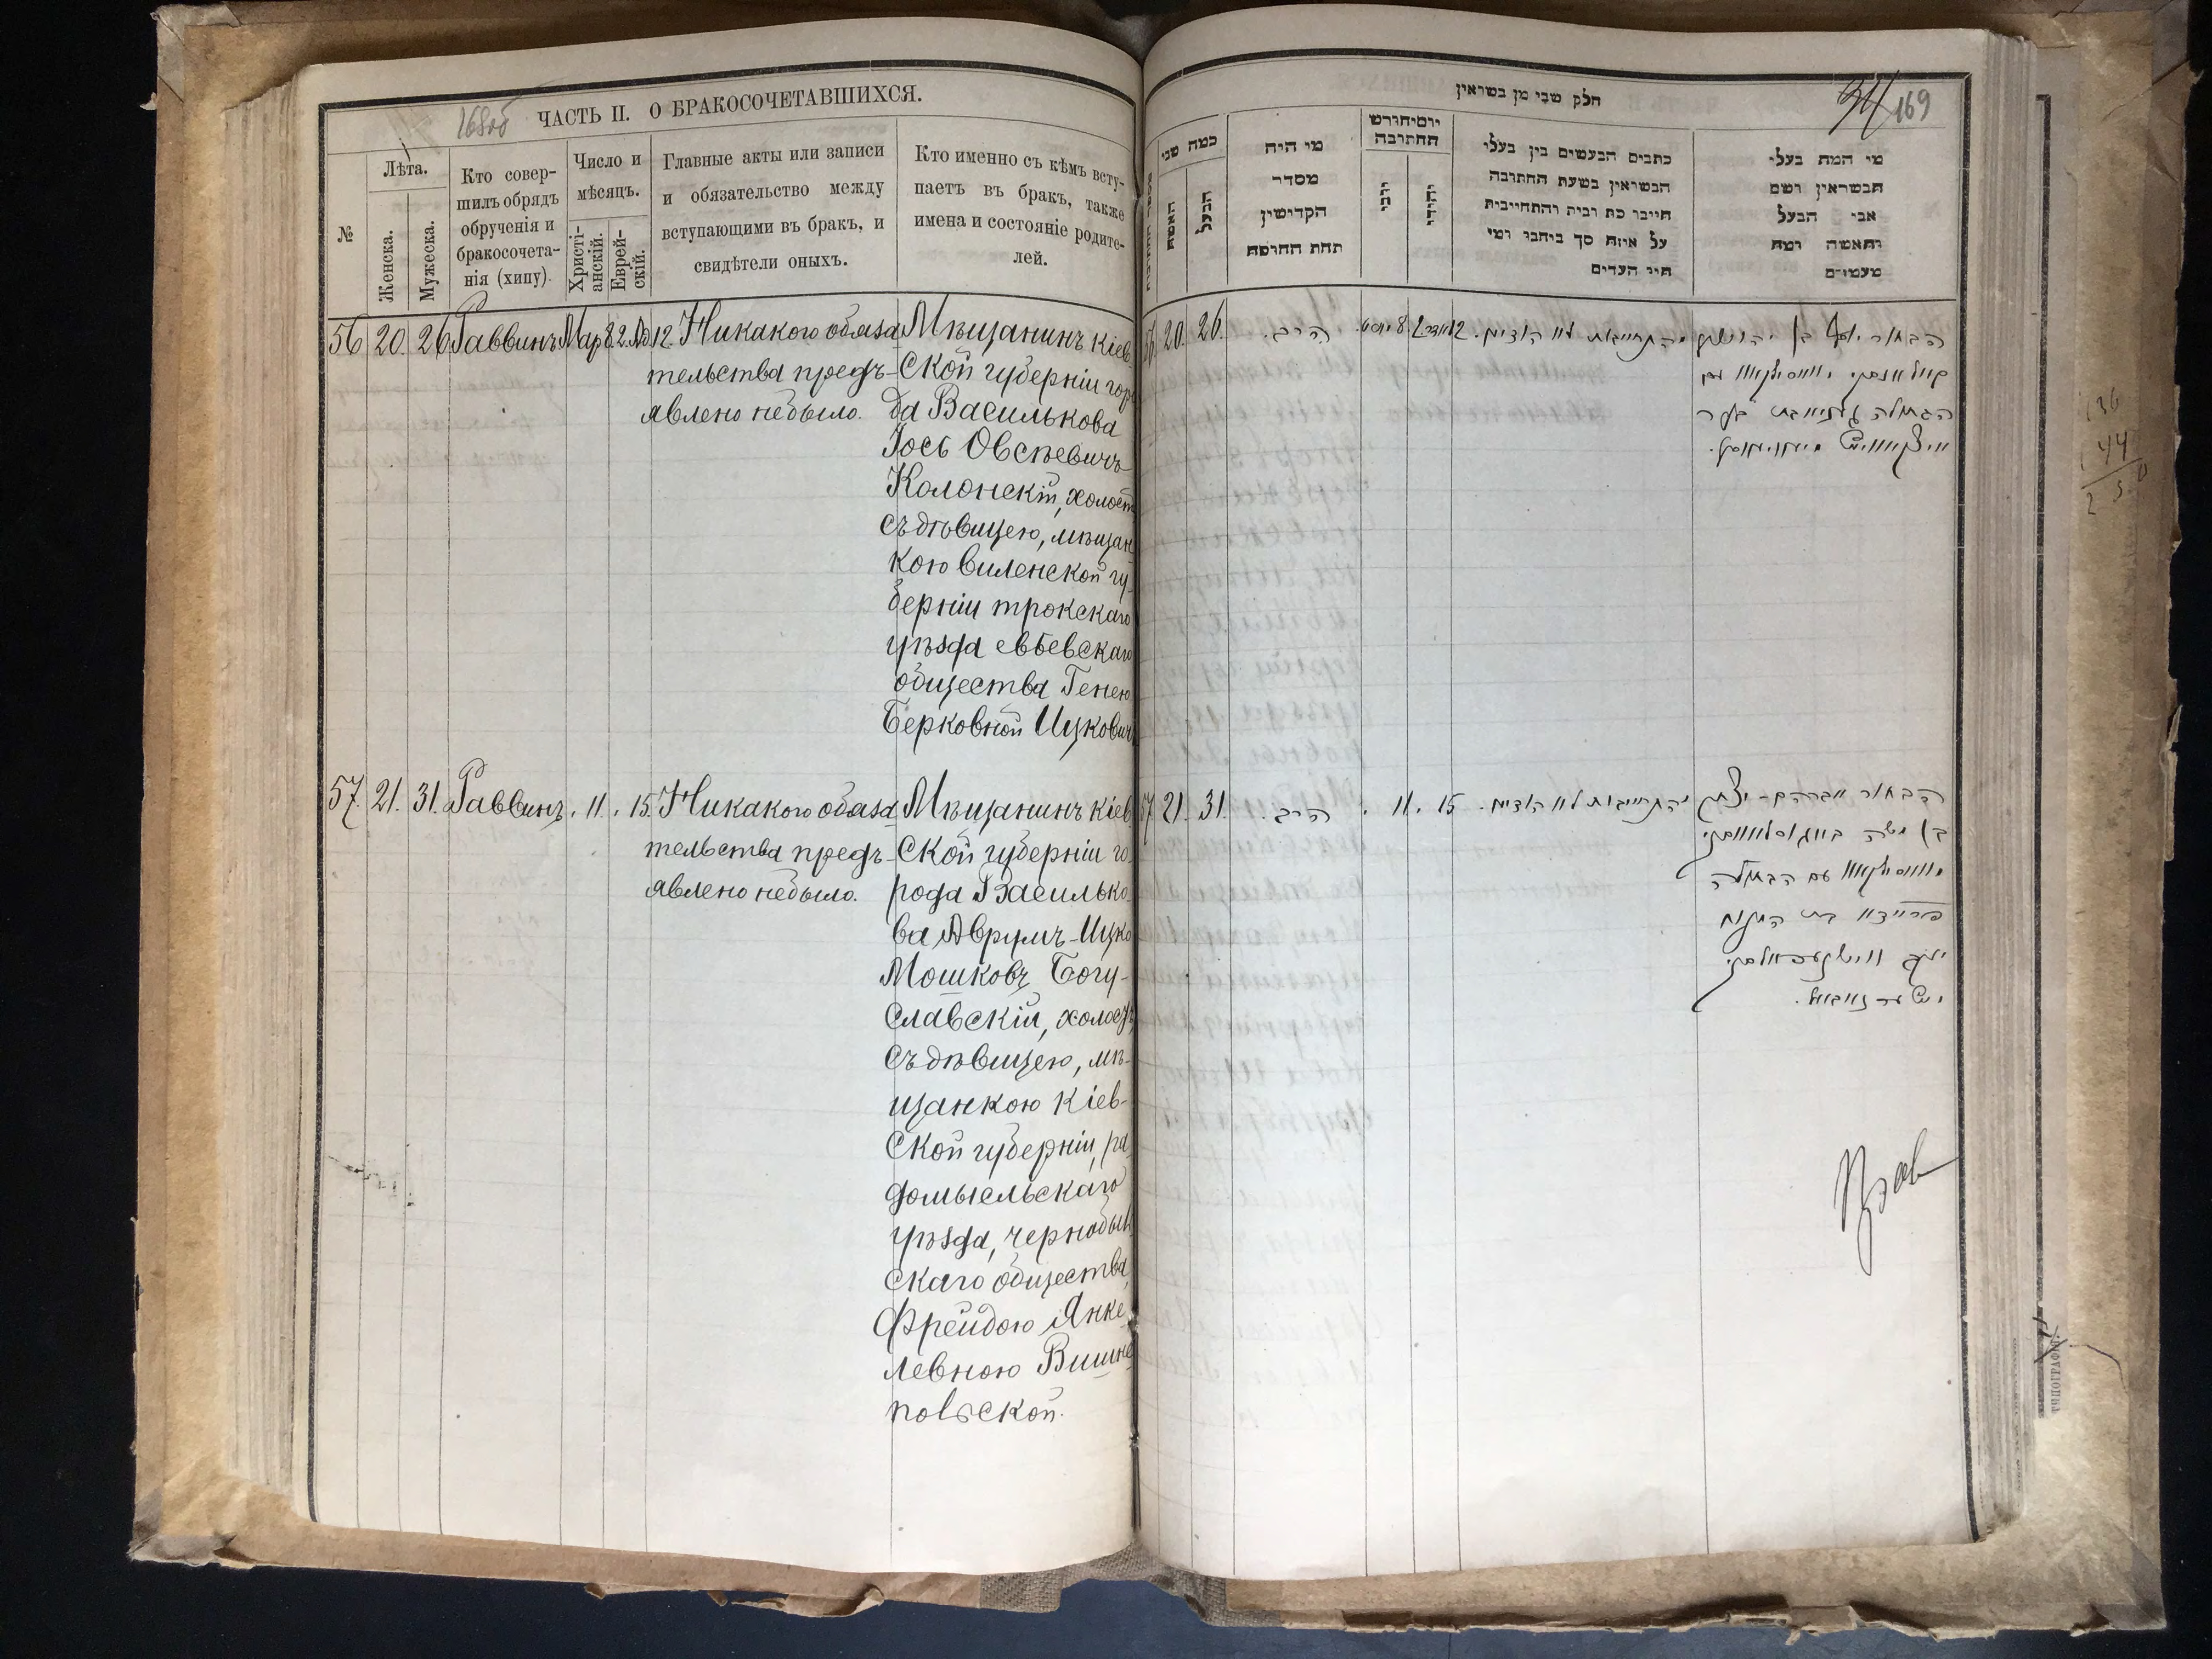 168об
ЧАСТЬ II. О БРАКОСОЧЕТАВШИХСЯ.
№
Лѣта.
Женска.
Мужеска.
Кто совер-
шилъ обрядъ
обрученія и
бракосочета-
нія (хипу).
Число и
мѣсяцъ.
Христі-
анскій.
Еврей-
скій.
Главные акты или записи
и обязательство между
вступающими въ бракъ, и
свидѣтели оныхъ.
Кто именно съ кѣмъ всту-
паетъ въ брак, также
имена и состояніе родите-
лей.
56 20. 26 Раввинъ Мар 8. 12. Никакого обяза
тельства предъ-
явлено небыло.
Мѣщанинъ кіев
ской губерніи горо
да Василькова
Іось Овсѣевичъ
Колонскій, холост
съ дѣвицею, мѣщан
кою виленской гу-
берніи трокскаго
уѣзда евьевскаго
общества Генею
Берковной Ицкович
57. 21. 31. Раввинъ. 11. 15. Никакого обяза
тельства предъ-
явлено небыло.
Мѣщанинъ Кіев
ской губерніи го
рода Василько
ва Аврумъ-Ицко
Мошковъ Богу-
славскій, холостъ
съ дѣвицею, мѣ-
щанкою Кіев-
ской губерніи, ра
домысльскаго
уѣзда, чернобыл
скаго общества,
Фрейдою Янке
левною Вишне
польской.
חלק שני מן נשואין
169
כמה שני
האשה
הבעל
מי היה
מסדר
הקדישין
תחת החופה
יום וחודש
החתונה
נוצרי
יהודי
כתבים הנעשים בין בעלי
הנשואין בשעת החתונה
חייבו כת ובית והתחייבות
על איזה סך ביחבו ומי
היו העדים
מי המה בעלי
הנשואין ושם
אבי הבעל
והאשה ומה
מעמדם
56. 20. 26. הרב. 8 12 התחייבות לא הודיעו.
הבחור יוסף בן יהושע
מוואסילקאוו עם
הבתולה
57 21. 31. הרב. 11. 15. התחייבות לא הודיעו.
הבחור אברהם-יצחק
בן משה באגוסלאווסקי
מוואסילקאוו עם הבתולה
פריידא בת
יעקב ווישנעפאלסקי